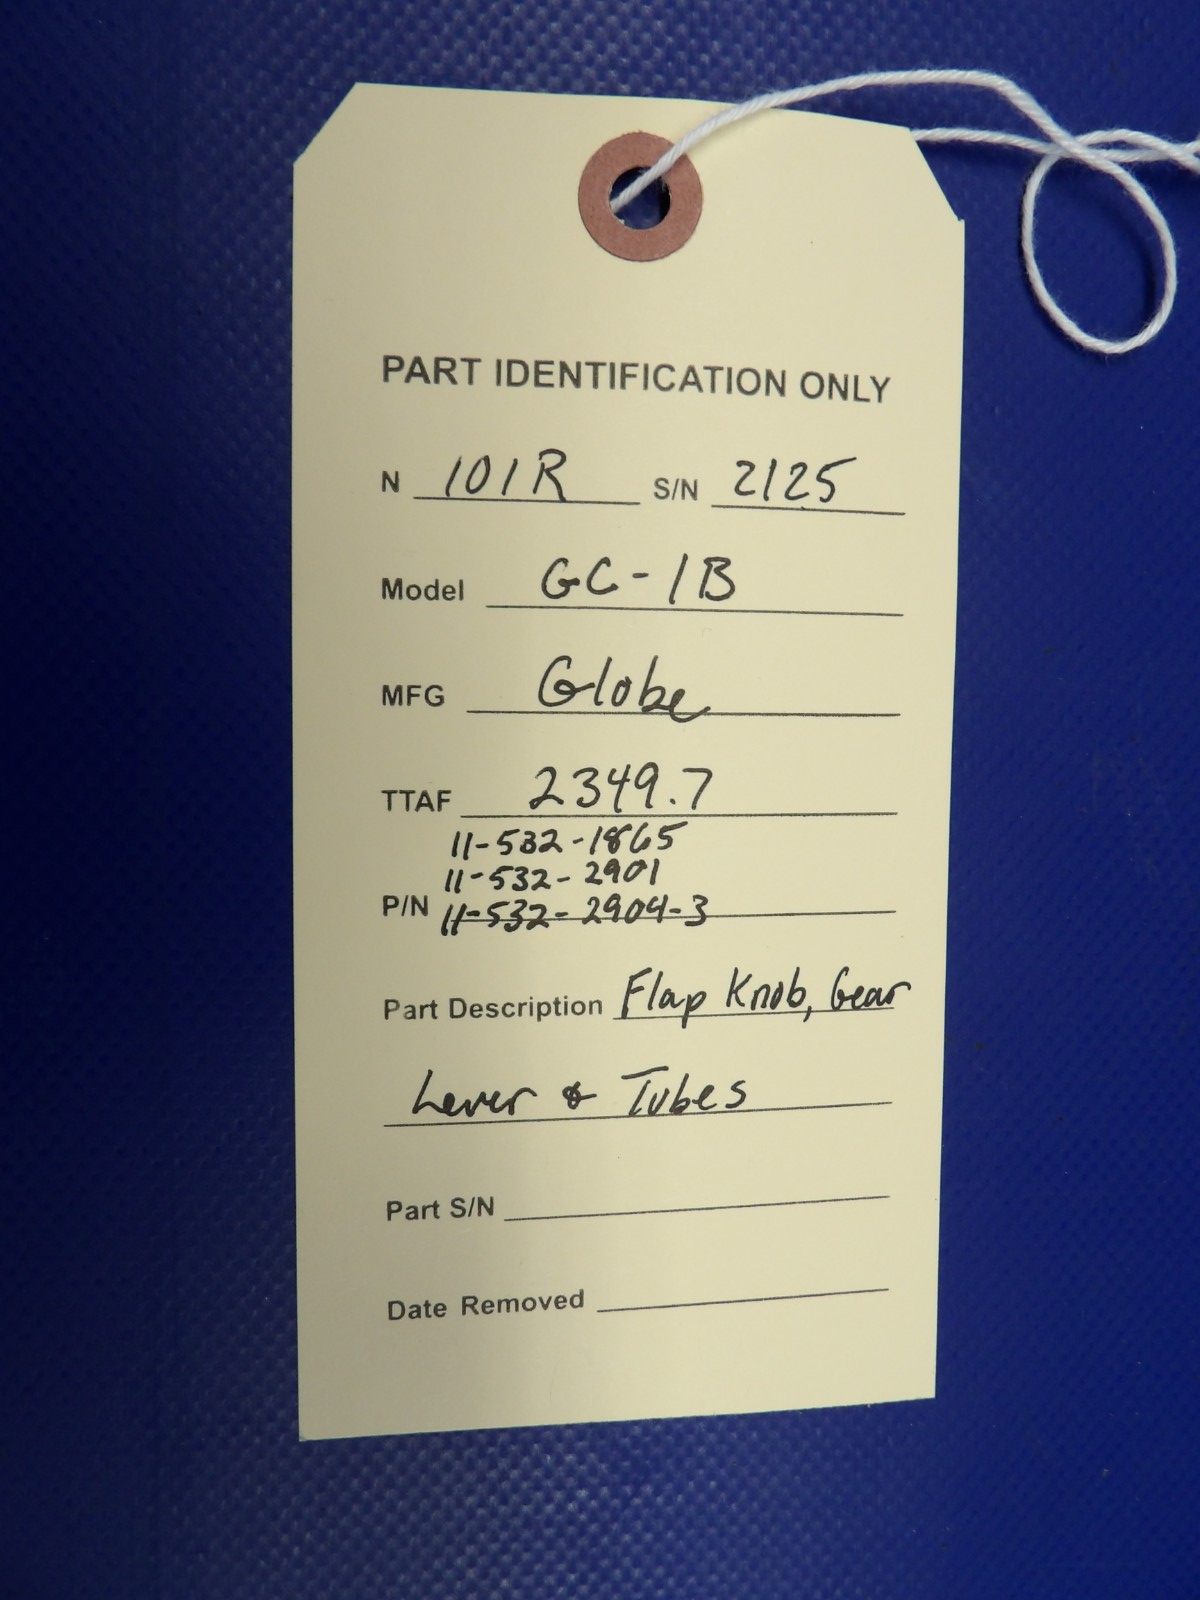 PART IDENTIFICATION ONLY
N 101R S/N 2125
Model GC-1B
MFG Globe
TTAF 2349.7
11-532-1865
11-532-2901
P/N 11-532-2904-3
Part Description Flap Knob, Gear
Lever & Tubes
Part S/N
Date Removed